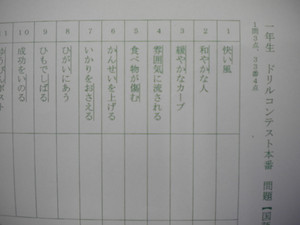 一年生 ドリルコンテスト本番 問題【国語
1問3点、33番4点
1 快い風
2 和やかな人
3 緩やかなカーブ
4 雰囲気に流される
5 食べ物が傷む
6 かんせいを上げる
7 いかりをおさえる
8 ひがいにあう
9 ひもでしばる
10 成功をいのる